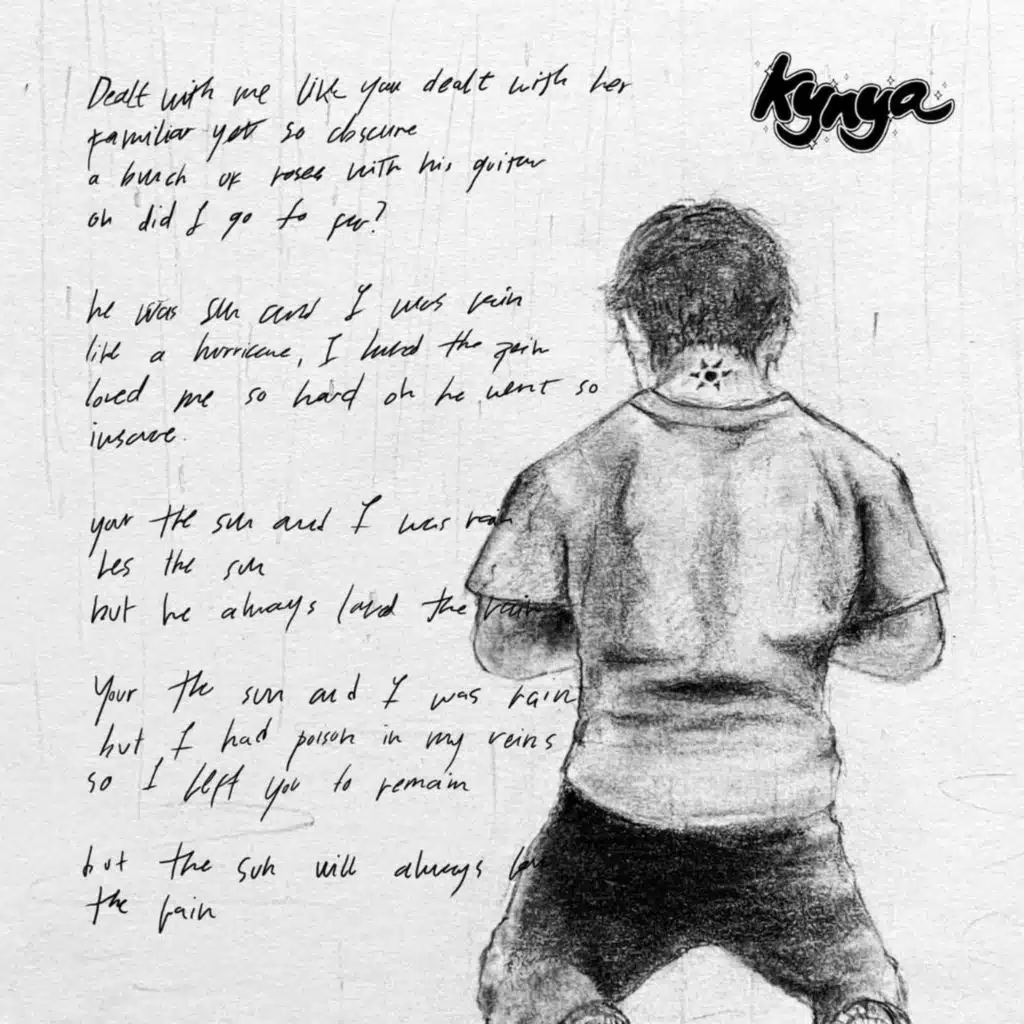 Kynya
Dealt with me like you dealt with her
familiar yet so obscure
a bunch of roses with his guitar
oh did I go to far?
he was sun and I was rain
like a hurricane, I loved the pain
loved me so hard oh he went so
insane.
your the sun and I was rain
the sun
but he always loved the rain
Your the sun and I was rain
but I had poison in my veins
so I left you to remain
but the sun will always love
the rain